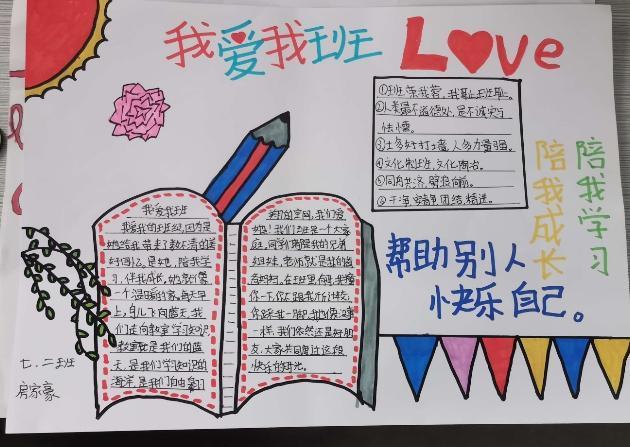 我爱我班 Love
①班荣我荣，我
②人类最不道德处，是不诚实与
怯懦。
③土多好打墙，人多力量强。
④文化制班，文化陶治。
⑤同舟共济，
⑥团结，精进。
陪我学习
陪我成长
帮助别人
快乐自己。
我爱我班
我爱我的班级，因为是
她给我带来了数不清的美
好回忆。是她，陪我学
习，伴我成长。她就像
一个温暖的家。每天早
上，鸟儿飞向蓝天，我
们走向教室学习知识
教室就是我们的蓝
天，是我们学习知识的
海洋，是我们自由翱翔
的空间。我们爱
她！我们班是一个大家
庭，同学们是我的兄弟
姐妹，老师就是我的爸
爸妈妈，在班里
一样，我们依然还是好朋
友，大家共同度过这段
快乐的时光。
七、二班
房家豪